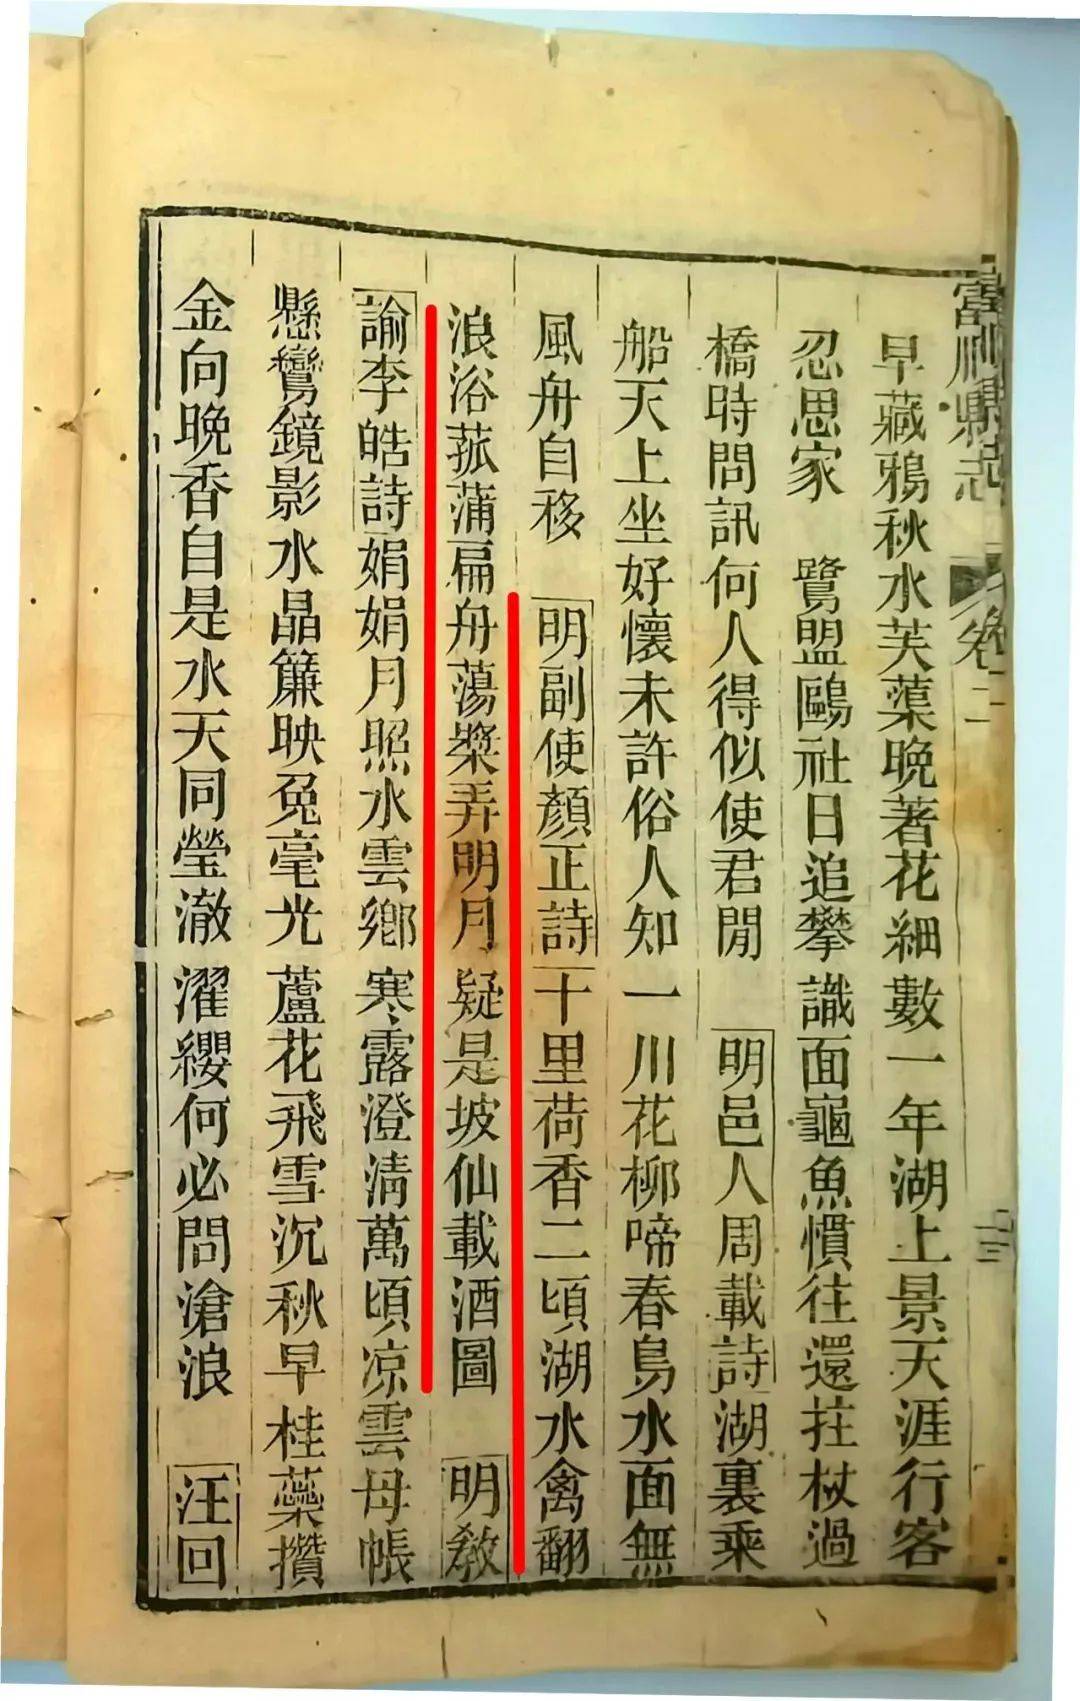 富順縣志
卷二
二三
早藏鴉秋水芙蕖晚著花細數一年湖上景天涯行客
忍思家　鷺盟鷗社日追攀識面龜魚慣往還拄杖過
橋時問訊何人得似使君閒　明邑人周載詩湖裏乘
船天上坐好懷未許俗人知一川花柳啼春鳥水面無
風舟自移　明副使顏正詩十里荷香二頃湖水禽翻
浪浴菰蒲扁舟蕩槳弄明月疑是坡仙載酒圖　明教
諭李皓詩娟娟月照水雲鄉寒露澄淸萬頃凉雲母帳
懸鸞鏡影水晶簾映兔毫光蘆花飛雪沉秋早桂蘂攢
金向晚香自是水天同瑩澈濯纓何必問滄浪　汪回